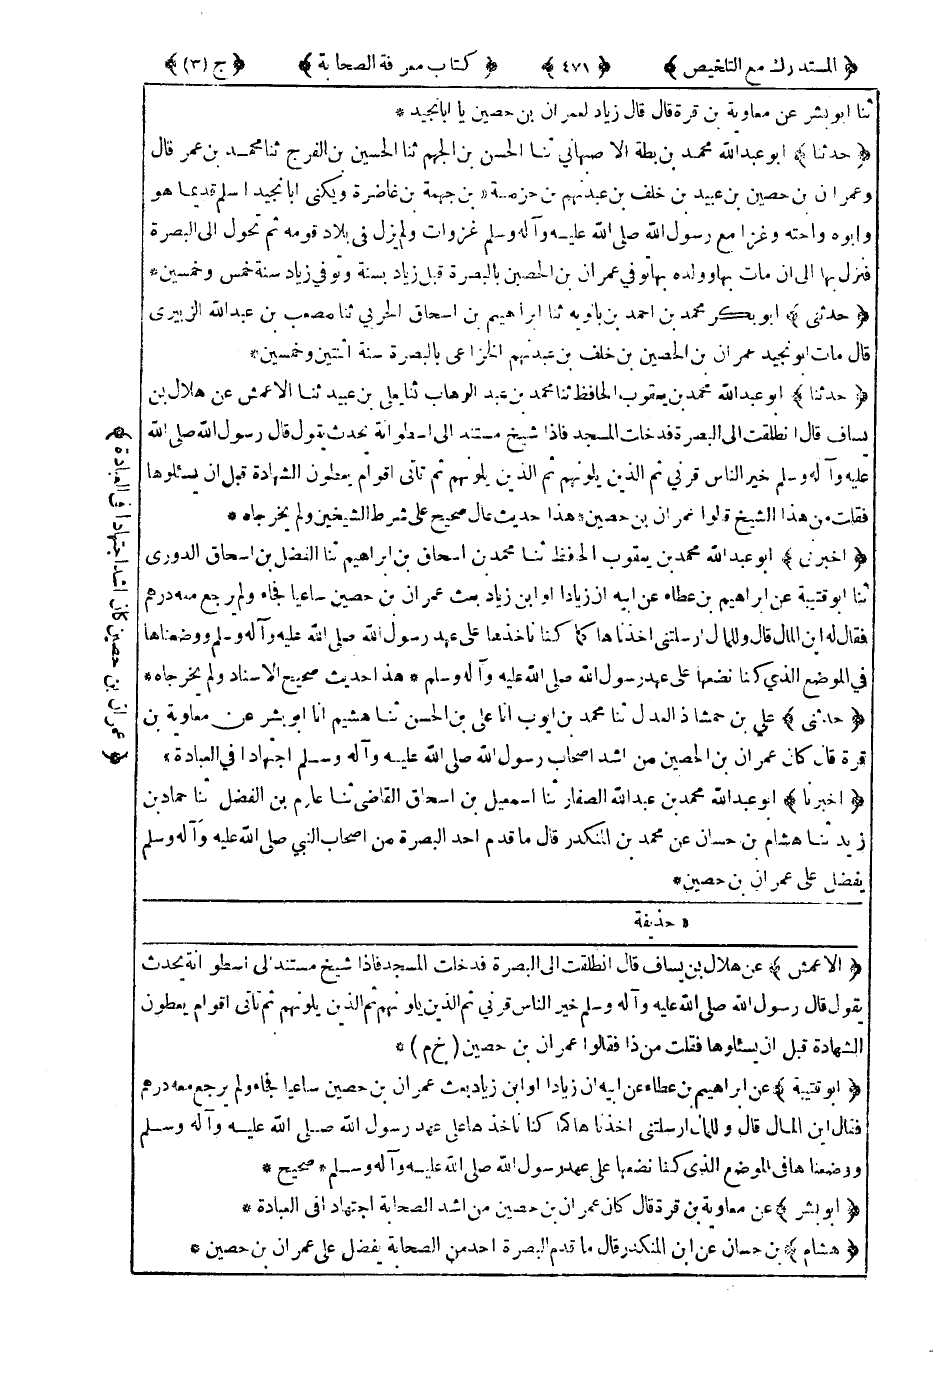 ﴿ المستدرك مع التلخيص ﴾ ﴿ ٤٧١ ﴾ ﴿ كتاب معرفة الصحابة ﴾ ﴿ ج (٣) ﴾
ثنا ابو بشر عن معاوية بن قرة قال قال زياد لعمران بن حصين يا ابا نجيد *
﴿ حدثنا ﴾ ابو عبد الله محمد بن بطة الاصبهاني ثنا الحسن بن الجهم ثنا الحسين بن الفرج ثنا محمد بن عمر قال
وعمران بن حصين بن عبيد بن خلف بن عبد نهم بن حزمة بن جهمة بن غاضرة ويكنى ابا نجيد اسلم قديما هو
وابوه واخته وغزا مع رسول الله صلى الله عليه وآله وسلم غزوات ولم يزل في بلاد قومه ثم تحول الى البصرة
فنزل بها الى ان مات بها وولده بها توفي عمران بن الحصين بالبصرة قبل زياد بسنة وتوفي زياد سنة خمس وخمسين *
﴿ حدثني ﴾ ابو بكر محمد بن احمد بن بانويه ثنا ابراهيم بن اسحاق الحربي ثنا مصعب بن عبد الله الزبيرى
قال مات ابو نجيد عمران بن الحصين بن خلف بن عبد نهم الخزاعى بالبصرة سنة اثنتين وخمسين *
﴿ حدثنا ﴾ ابو عبد الله محمد بن يعقوب الحافظ ثنا محمد بن عبد الوهاب ثنا يعلى بن عبيد ثنا الاعمش عن هلال بن
يساف قال انطلقت الى البصرة فدخلت المسجد فاذا شيخ مستند الى اسطوانة يحدث يقول قال رسول الله صلى الله
عليه وآله وسلم خير الناس قرني ثم الذين يلونهم ثم الذين يلونهم ثم تأتى اقوام يعطون الشهادة قبل ان يسئلوها
فقلت من هذا الشيخ قالوا عمران بن حصين * هذا حديث عال صحيح على شرط الشيخين ولم يخرجاه *
﴿ اخبرنى ﴾ ابو عبد الله محمد بن يعقوب الحافظ ثنا محمد بن اسحاق بن ابراهيم ثنا الفضل بن اسحاق الدورى
ثنا ابو قتيبة عن ابراهيم بن عطاء عن ابيه ان زيادا او ابن زياد بعث عمران بن حصين ساعيا فجاء ولم يرجع معه درهم
فقال له اين المال قال وللمال ارسلتنى اخذناها كما كنا نأخذها على عهد رسول الله صلى الله عليه وآله وسلم ووضعناها
في الموضع الذي كنا نضعها على عهد رسول الله صلى الله عليه وآله وسلم * هذا حديث صحيح الاسناد ولم يخرجاه *
﴿ حدثنى ﴾ علي بن حمشاذ العدل ثنا محمد بن ايوب انا على بن الحسن ثنا هشيم انا ابو بشر عن معاوية بن
قرة قال كان عمران بن الحصين من اشد اصحاب رسول الله صلى الله عليه وآله وسلم اجتهادا في العبادة *
﴿ اخبرنا ﴾ ابو عبد الله محمد بن عبد الله الصفار ثنا اسمعيل بن اسحاق القاضى ثنا عارم بن الفضل ثنا حماد بن
زيد ثنا هشام بن حسان عن محمد بن المنكدر قال ما قدم احد البصرة من اصحاب النبي صلى الله عليه وآله وسلم
يفضل على عمران بن حصين *
﴿ عمران بن حصين كان اشد اجتهادا فى العبادة ﴾
* حذيفة
﴿ الاعمش ﴾ عن هلال بن يساف قال انطلقت الى البصرة فدخلت المسجد فاذا شيخ مستند الى اسطوانة يحدث
يقول قال رسول الله صلى الله عليه وآله وسلم خير الناس قرني ثم الذين يلونهم ثم الذين يلونهم ثم تأتى اقوام يعطون
الشهادة قبل ان يسئلوها فقلت من ذا فقالوا عمران بن حصين (خ م) *
﴿ ابو قتيبة ﴾ عن ابراهيم بن عطاء عن ابيه ان زيادا او ابن زياد بعث عمران بن حصين ساعيا فجاء ولم يرجع معه درهم
فقال اين المال قال وللمال ارسلتنى اخذناها كما كنا نأخذها على عهد رسول الله صلى الله عليه وآله وسلم
ووضعناها فى الموضع الذى كنا نضعها على عهد رسول الله صلى الله عليه وآله وسلم * صحيح *
﴿ ابو بشر ﴾ عن معاوية بن قرة قال كان عمران بن حصين من اشد الصحابة اجتهادا فى العبادة *
﴿ هشام ﴾ بن حسان عن ابن المنكدر قال ما قدم البصرة احد من الصحابة يفضل على عمران بن حصين *